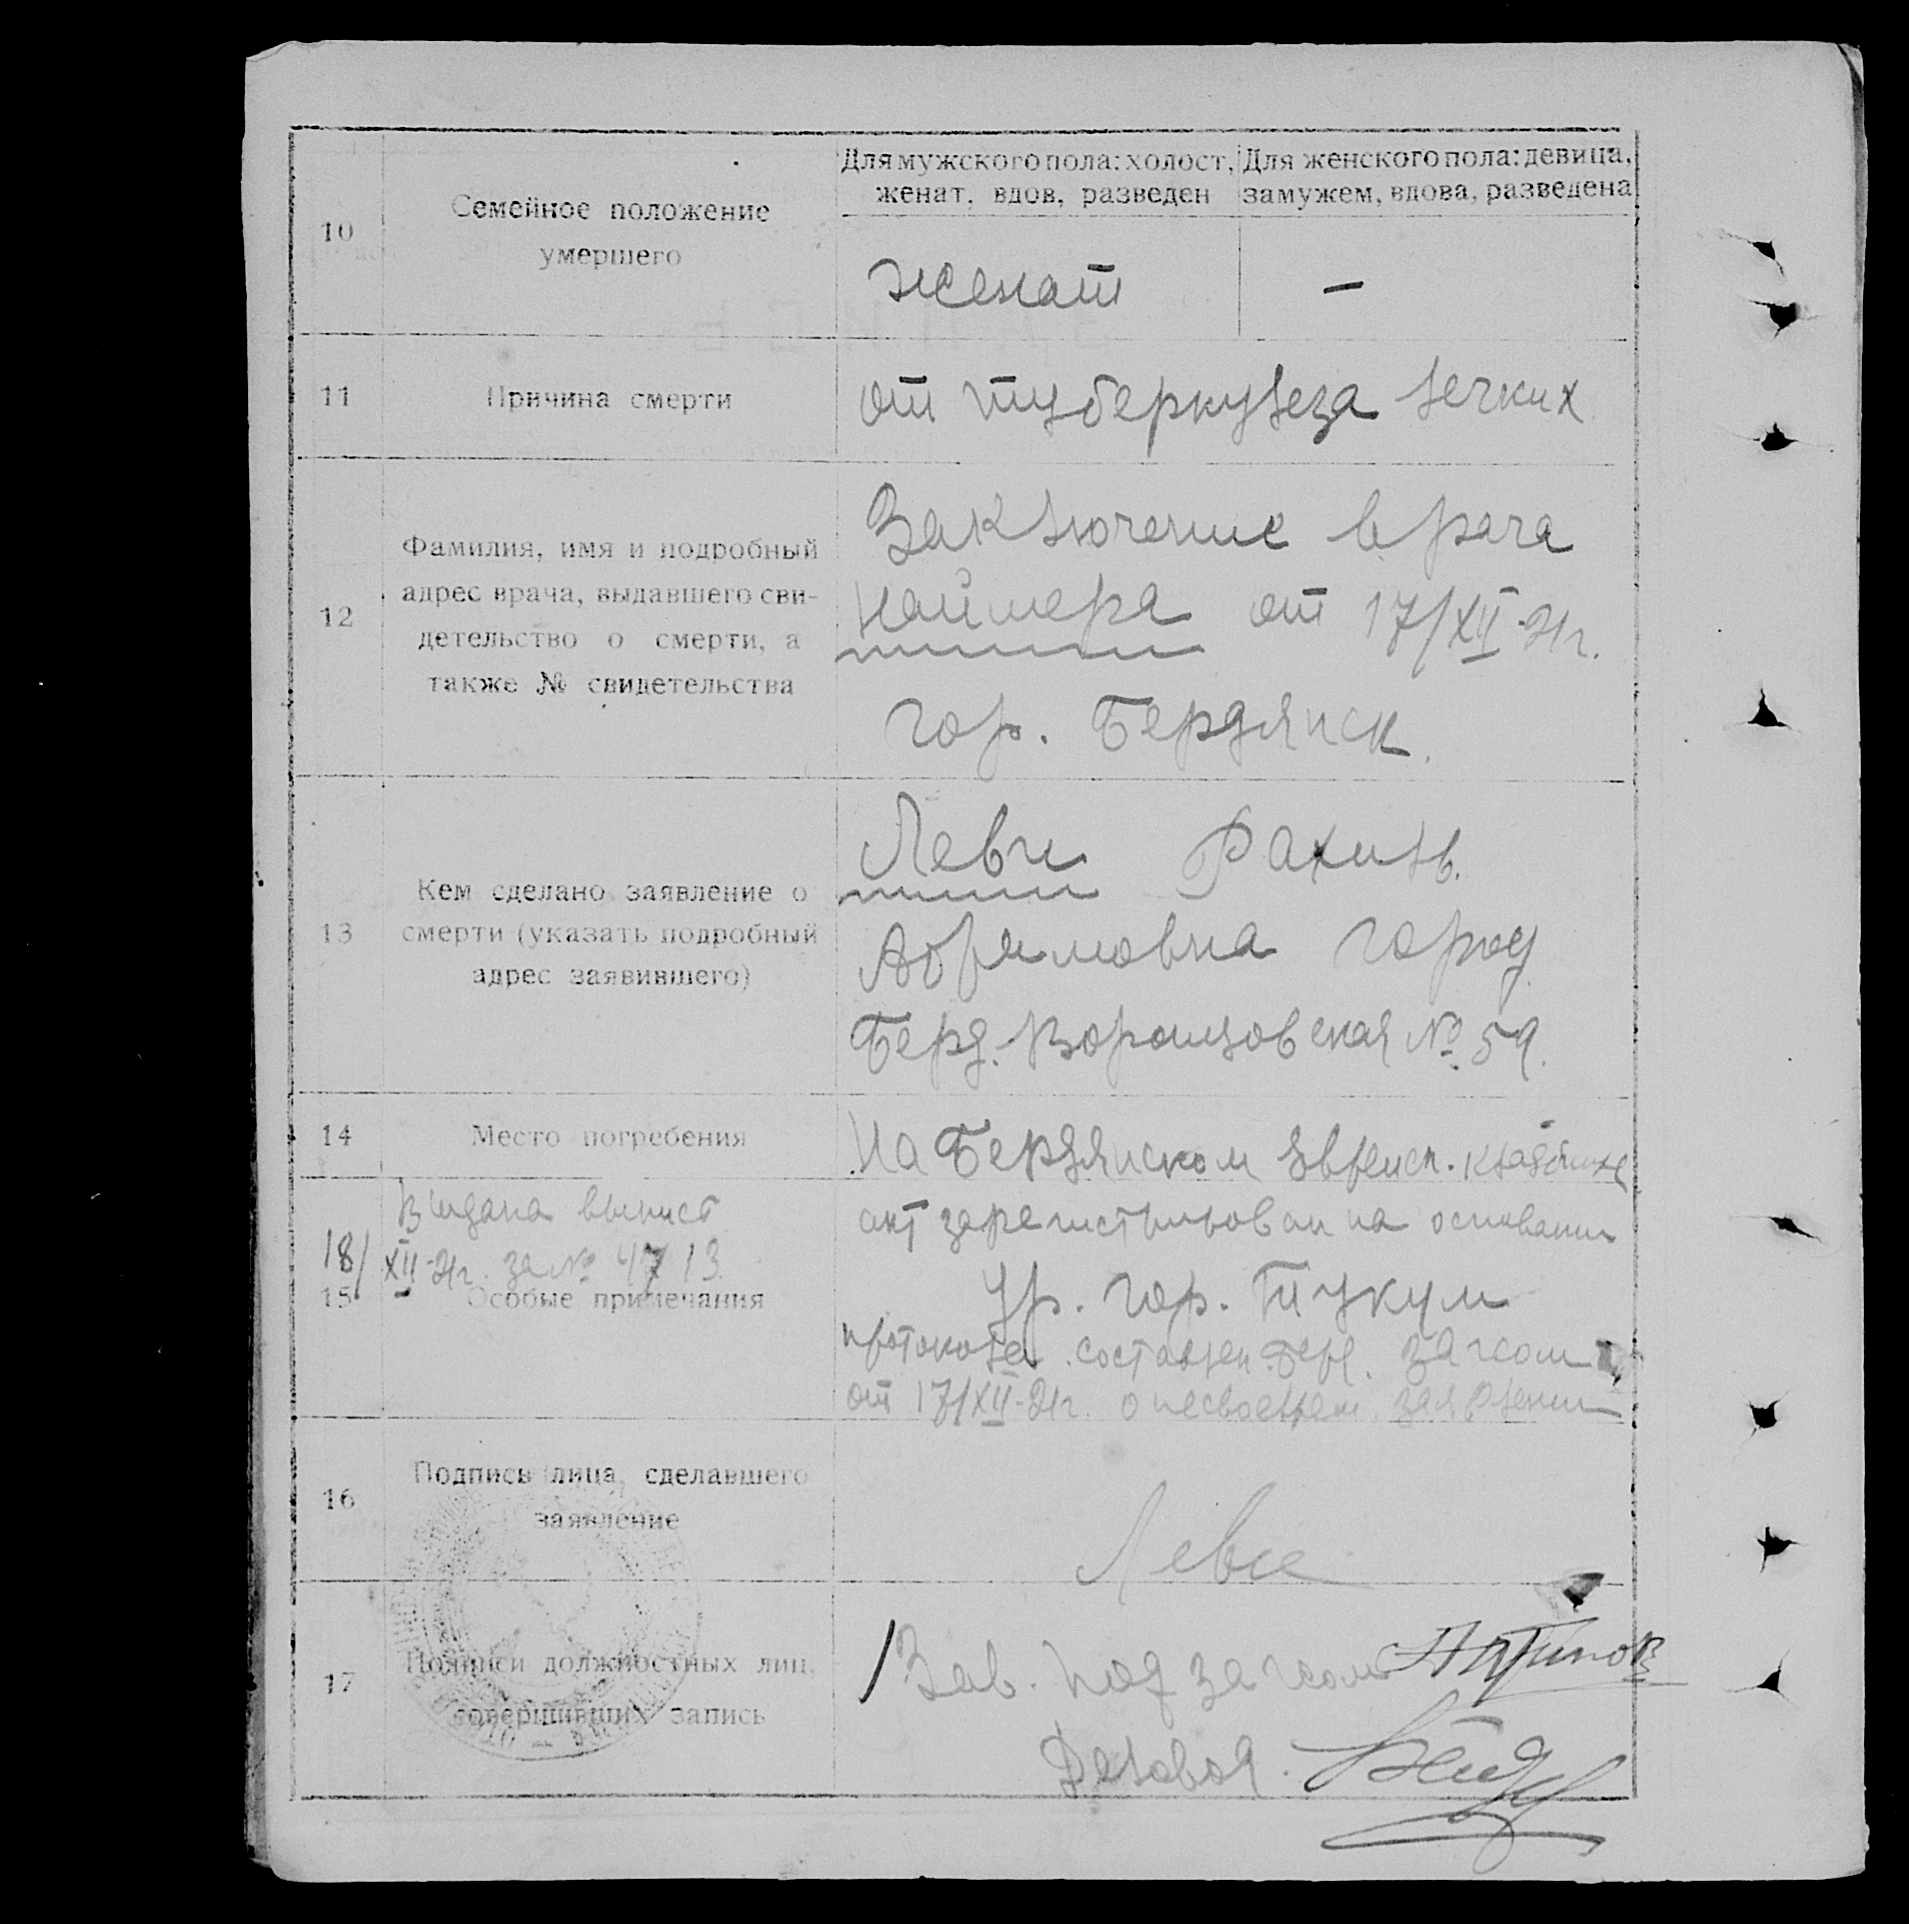 Для мужского пола: холост, женат, вдов, разведен
Для женского пола: девица, замужем, вдова, разведена
10 Семейное положение
умершего
женат —
11 Причина смерти
от туберкулеза легких
12 Фамилия, имя и подробный
адрес врача, выдавшего сви-
детельство о смерти, а
также № свидетельства
Заключение врача
Наймера от 17/XII-21г.
гор. Бердянск.
13 Кем сделано заявление о
смерти (указать подробный
адрес заявившего)
Леви Рахиль
Абрамовна город
Берд. Воронцовская № 59.
14 Место погребения
На Бердянском Еврейск. кладбище
Выдана выпись
18/XII-21г. за № 4713
15 Особые примечания
акт зарегистрирован на основании
гор. Тукум
составлен Берд. загсом
от 17/XII-21г. о несвоеврем. заявлении
16 Подпись лица, сделавшего
заявление
Леви
17 Подписи должностных лиц,
совершивших запись
Зав. подзагсом